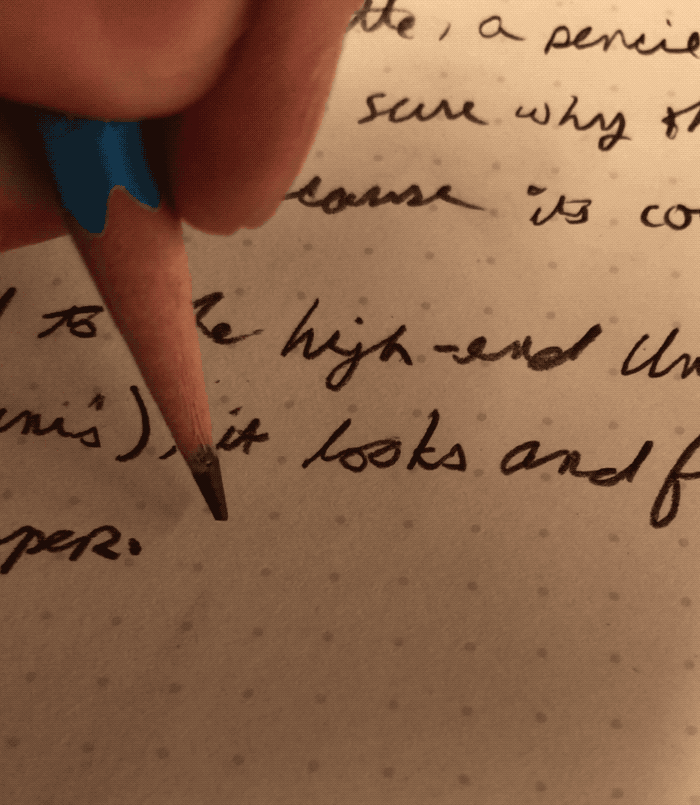 tte, a pencie
sure why th
cause its co
d to the high-end Un
uni's), it looks and f
per.